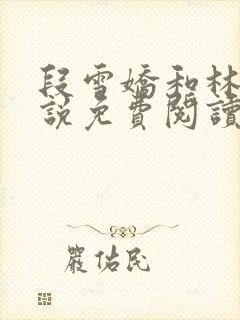 段雪嬌和林
說免費閱讀
嚴佑民